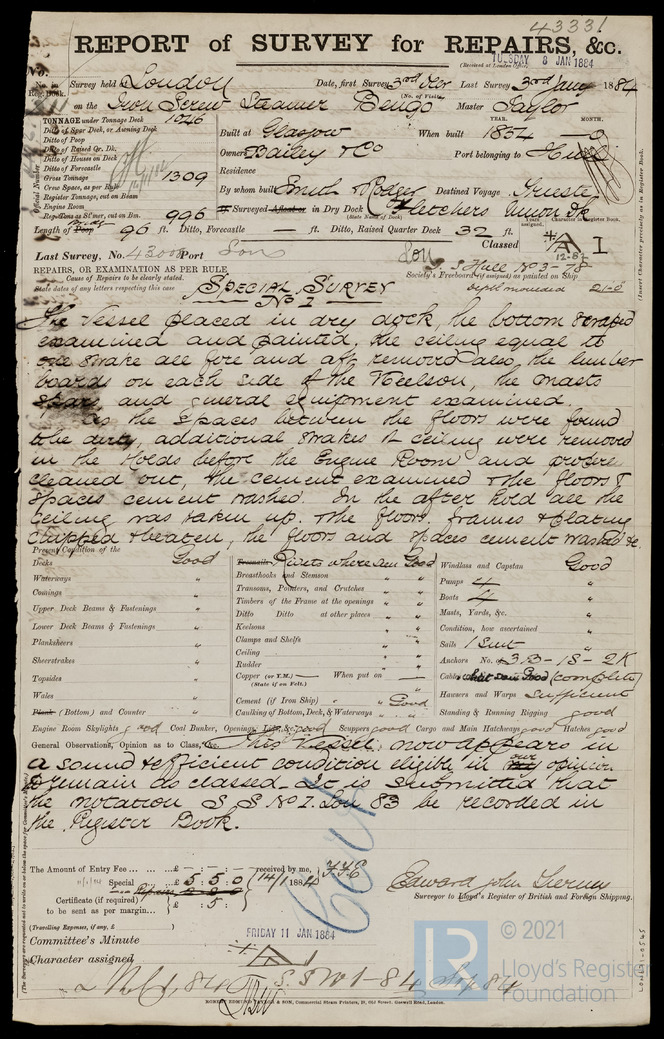 43331
REPORT of SURVEY for REPAIRS, &c.
(Received at London Office, TUESDAY 8 JAN 1884
No.
No. in Reg. Book. Survey held at London Date, first Survey 3rd Last Survey 3rd Jany 1884
(No. of Visits)
on the Iron Screw Steamer Bengo Master Taylor
TONNAGE under Tonnage Deck 1046
Ditto of Spar Deck, or Awning Deck
Ditto of Poop
Ditto of Raised Qr. Dk.
Ditto of House on Deck
Ditto of Forecastle
Gross Tonnage 1309
Cross Space, as per Rule
Register Tonnage, cut on Beam
Engine Room
Reg. Tons as St'mer, cut on Bm. 996
YEAR. MONTH.
Built at Glasgow When built 1854 - 9
Owner Bailey & Co Port belonging to Hull
Residence
By whom built Smith & Rodger Destined Voyage Trieste
If Surveyed Afloat or in Dry Dock Fletchers Union Dk
(State Name of Dock)
Length of Poop 96 ft. Ditto, Forecastle — ft. Ditto, Raised Quarter Deck 32 ft.
Years assigned. Character in Register Book.
Classed A I
12-81
Last Survey, No. 43006 Port Lon
Lon
S S Hull No 3 - 78
REPAIRS, OR EXAMINATION AS PER RULE
Cause of Repairs to be clearly stated.
State dates of any letters respecting this case
Society's Freeboard (if assigned) as painted on Ship
depth moulded 21-0
Special Survey
No I
The Vessel placed in dry dock, the bottom scraped
examined and painted, the ceiling equal to
one strake all fore and aft removed also, the limber
boards on each side of the Keelson, the masts
spars and general equipment examined.
As the spaces between the floors were found
to be dirty, additional strakes of ceiling were removed
in the Holds before the Engine Room and
cleaned out, the cement examined & the floors &
spaces cement washed. In the after hold all the
ceiling was taken up, the floors, frames & plating
chipped & beaten, the floors and spaces cement washed &c.
Present Condition of the
Decks Good
Waterways "
Comings "
Upper Deck Beams & Fastenings "
Lower Deck Beams & Fastenings "
Planksheers "
Sheerstrakes "
Topsides "
Wales "
Plank (Bottom) and Counter "
Treenails Rivets where seen Good
Breasthooks and Stemson " "
Transoms, Pointers, and Crutches " "
Timbers of the Frame at the openings " "
Ditto Ditto at other places " "
Keelsons " "
Clamps and Shelfs " "
Ceiling " "
Rudder " "
Copper (or Y.M.) — When put on —
(State if on Felt.)
Cement (if Iron Ship) " Good
Caulking of Bottom, Deck, & Waterways " "
Windlass and Capstan Good
Pumps 4 "
Boats 4 "
Masts, Yards, &c. "
Condition, how ascertained "
Sails 1 Suit "
Anchors No. 3B - 1S - 2K
Cables (complete)
Hawsers and Warps Sufficient
Standing & Running Rigging good
Engine Room Skylights good Coal Bunker, Openings, Lids, &c. good Scuppers good Cargo and Main Hatchways good Hatches good
General Observations, Opinion as to Class, &c. This Vessel now appears in
a sound & efficient condition eligible in our opinion
to remain as classed. It is submitted that
the notation S.S. No I. Lon 83 be recorded in
the Register Book.
The Amount of Entry Fee ... ... £ : : received by me,
Special ... £ 5 : 5 : 0 14/1 1884
Certificate (if required) £ : 5 :
to be sent as per margin....
(Travelling Expenses, if any, £ )
Edward John Tierney
Surveyor to Lloyd's Register of British and Foreign Shipping.
Cert
Committee's Minute FRIDAY 11 JAN 1884
Character assigned A 1
ROBERT EDMUND TAYLOR & SON, Commercial Steam Printers, 19, Old Street, Goswell Road, London.
LR © 2021
Lloyd's Register
Foundation